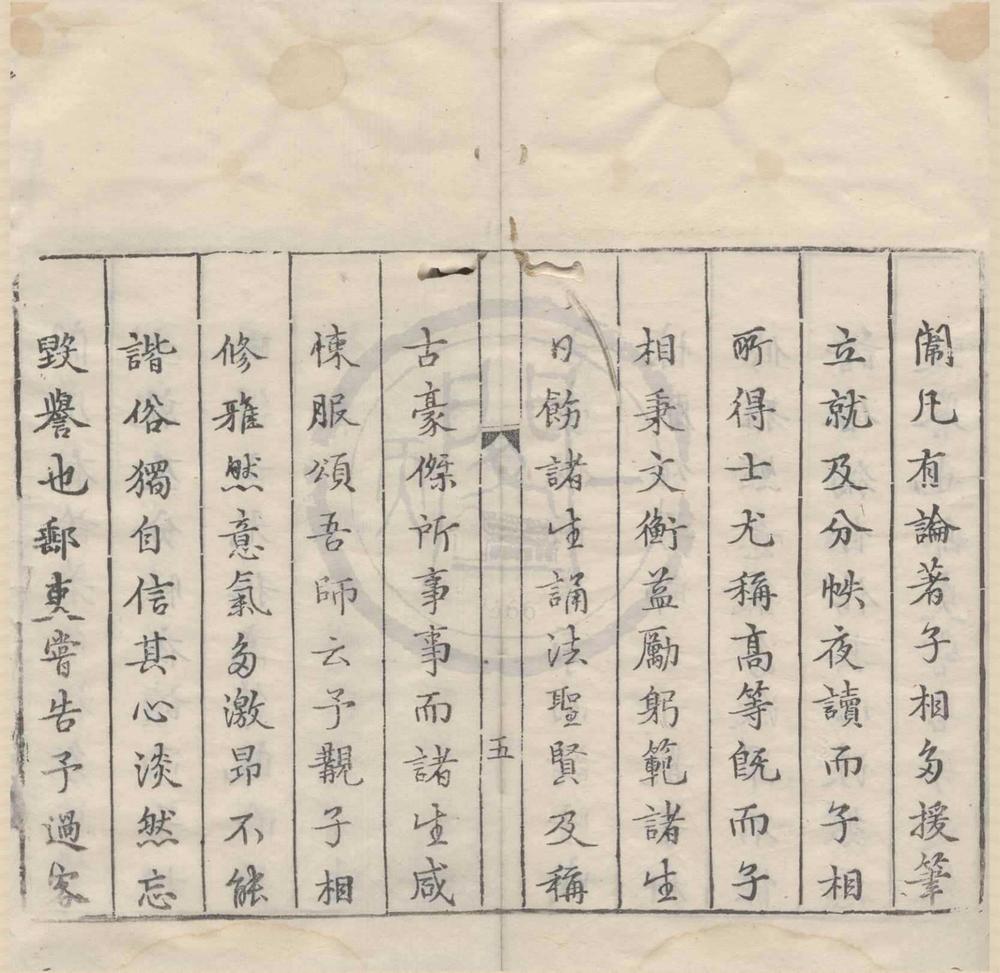 闈凡有論著子相多援筆
立就及分帙夜讀而子相
所得士尤稱高等既而子
相秉文衡益勵躬範諸生
日飭諸生誦法聖賢及稱
五
古豪傑所事事而諸生咸
悚服頌吾師云予觀子相
修雅然意氣多激昂不能
諧俗獨自信其心淡然忘
毀譽也郵吏嘗告予過客